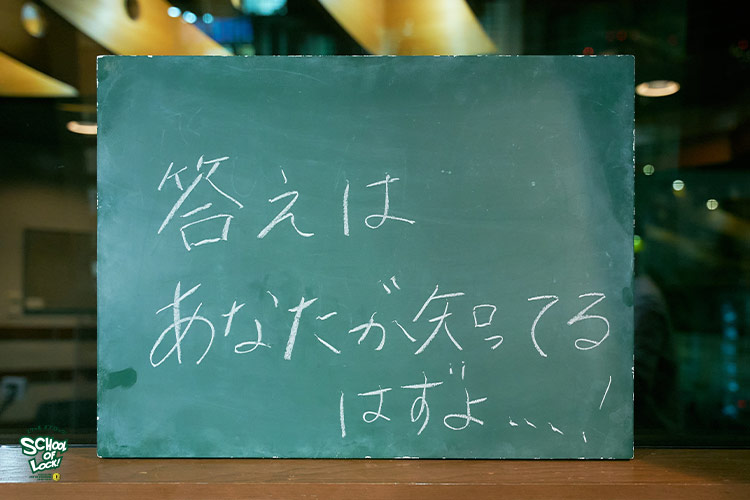 答えは
あなたが知ってる
はずよ...!
SCHOOL
OF
LOCK!